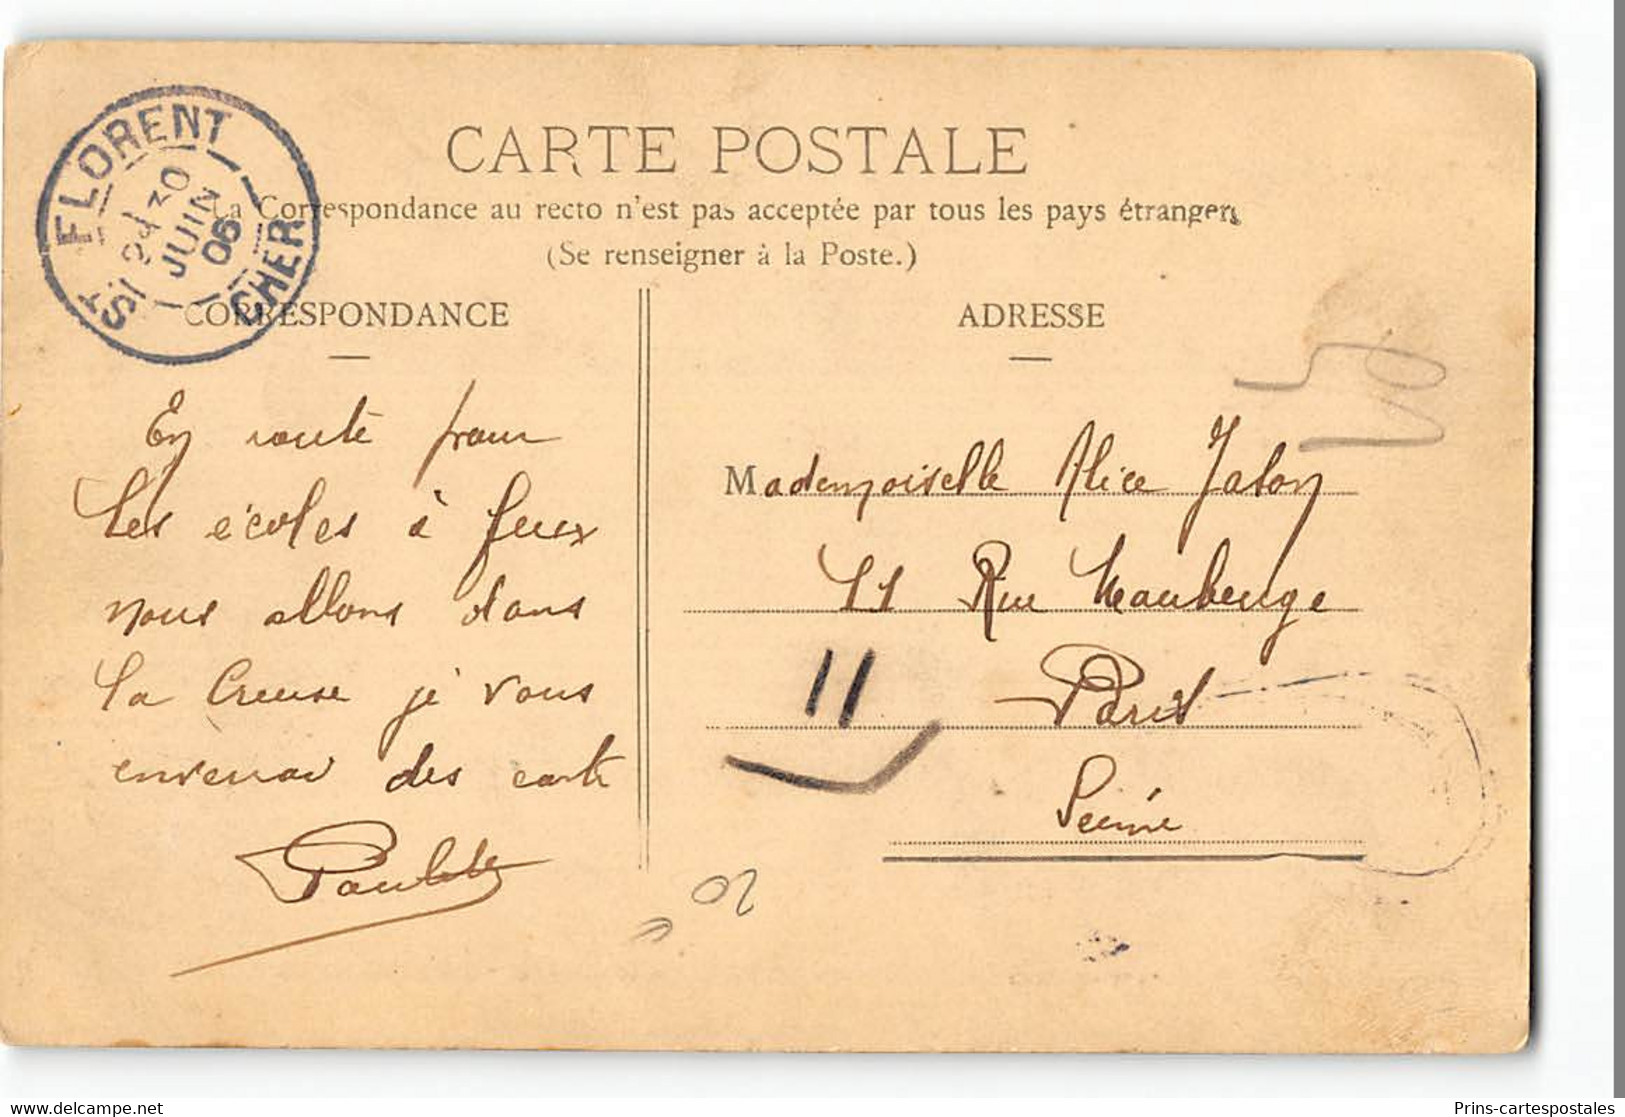 CARTE POSTALE
La Correspondance au recto n'est pas acceptée par tous les pays étrangers
(Se renseigner à la Poste.)
ST FLORENT
2E 30
JUIN
06
CHER
CORRESPONDANCE
En route pour
les écoles à feux
nous allons dans
la Creuse je vous
enverrai des carte
ADRESSE
Mademoiselle Alice Jalon
11 Rue Maubeuge
Paris
Seine
11
delcampe.net
Prins-cartespostales